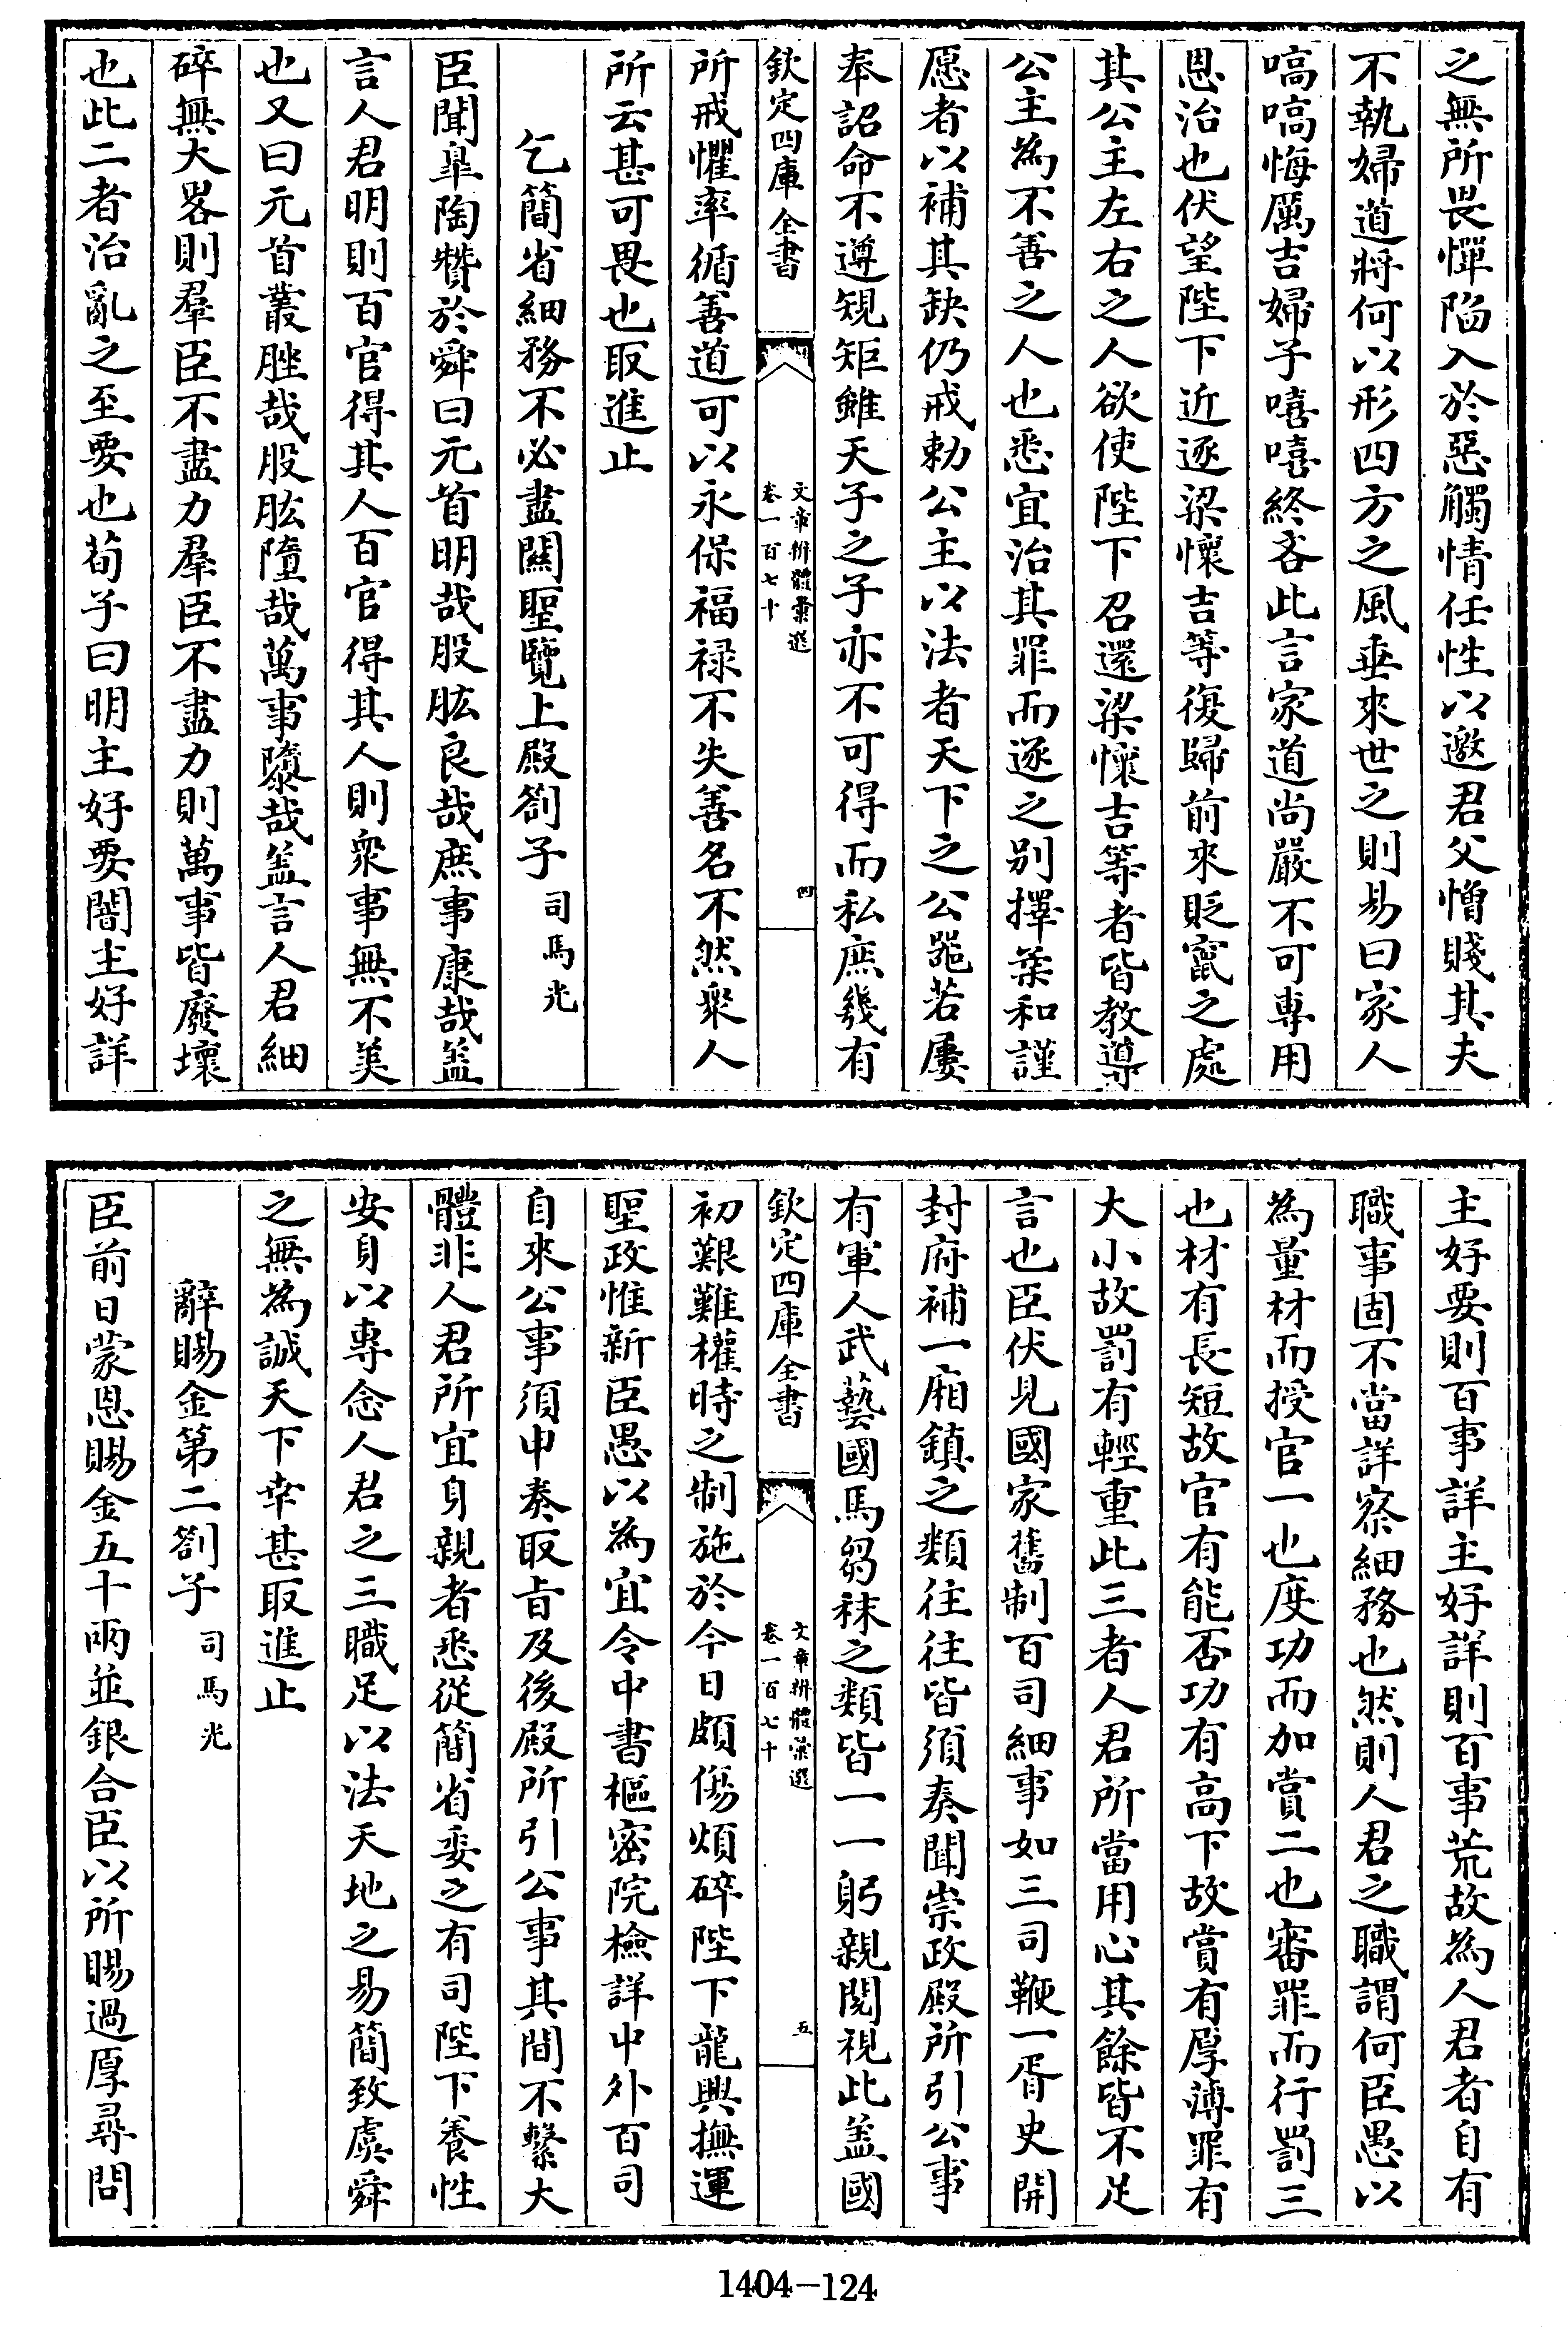 之無所畏憚陷入於惡觸情任性以邀君父憎賤其夫
不執婦道將何以形四方之風垂來世之則易曰家人
嗃嗃悔厲吉婦子嘻嘻終吝此言家道尚嚴不可專用
恩治也伏望陛下近逐梁懷吉等復歸前來貶竄之處
其公主左右之人欲使陛下召還梁懷吉等者皆教導
公主為不善之人也悉宜治其罪而逐之别擇柔和謹
愿者以補其缺仍戒勅公主以法者天下之公器若屢
奉詔命不遵規矩雖天子之子亦不可得而私庶幾有
欽定四庫全書
文章辨體彙選
卷一百七十
四
所戒懼率循善道可以永保福禄不失善名不然衆人
所云甚可畏也取進止
乞簡省細務不必盡關聖覽上殿劄子 司馬光
臣聞臯陶贊於舜曰元首明哉股肱良哉庶事康哉盖
言人君明則百官得其人百官得其人則衆事無不美
也又曰元首叢脞哉股肱墮哉萬事隳哉盖言人君細
碎無大畧則羣臣不盡力羣臣不盡力則萬事皆廢壞
也此二者治亂之至要也荀子曰明主好要闇主好詳
主好要則百事詳主好詳則百事荒故為人君者自有
職事固不當詳察細務也然則人君之職謂何臣愚以
為量材而授官一也度功而加賞二也審罪而行罰三
也材有長短故官有能否功有高下故賞有厚薄罪有
大小故罰有輕重此三者人君所當用心其餘皆不足
言也臣伏見國家舊制百司細事如三司鞭一胥史開
封府補一廂鎮之類往往皆須奏聞崇政殿所引公事
有軍人武藝國馬芻秣之類皆一一躬親閱視此盖國
欽定四庫全書
文章辨體彙選
卷一百七十
五
初艱難權時之制施於今日頗傷煩碎陛下龍興撫運
聖政惟新臣愚以為宜令中書樞密院檢詳中外百司
自來公事須申奏取旨及後殿所引公事其間不繫大
體非人君所宜身親者悉從簡省委之有司陛下養性
安身以專念人君之三職足以法天地之易簡致虞舜
之無為誠天下幸甚取進止
辭賜金第二劄子 司馬光
臣前日蒙恩賜金五十兩並銀合臣以所賜過厚尋問
1404—124